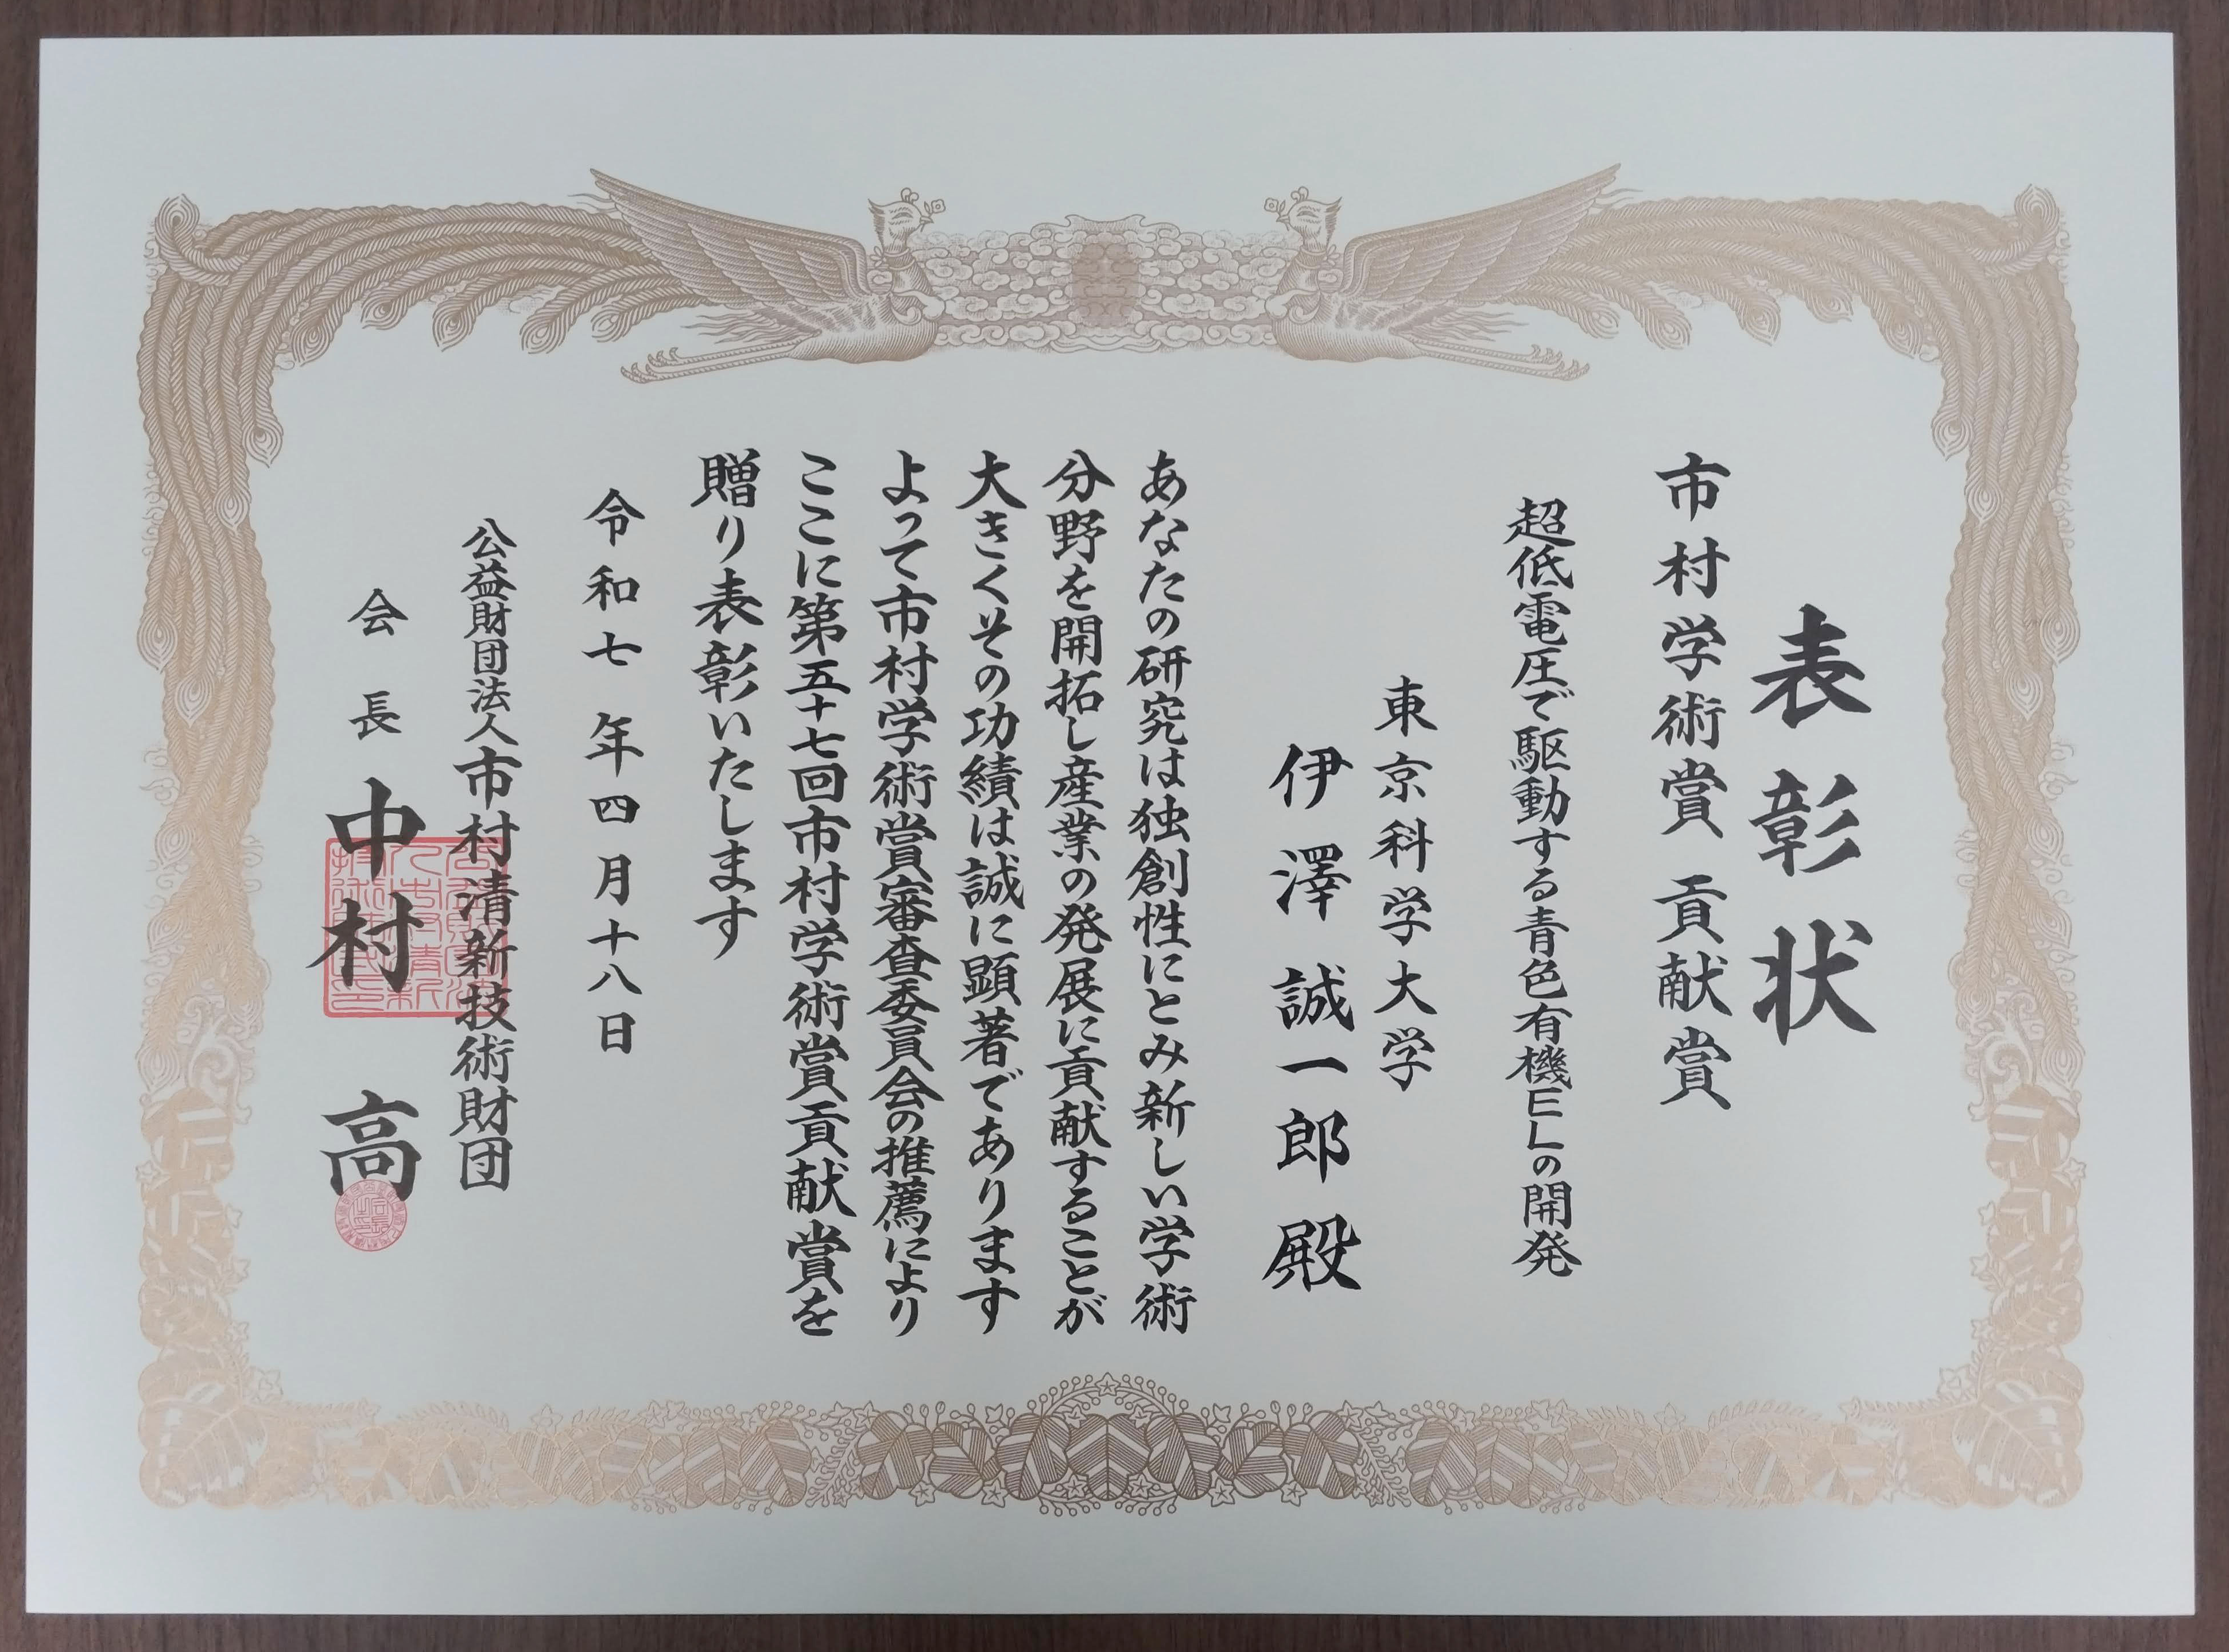 表彰状
市村学術賞 貢献賞
超低電圧で駆動する青色有機ELの開発
東京科学大学
伊澤誠一郎殿
あなたの研究は独創性にとみ新しい学術
分野を開拓し産業の発展に貢献することが
大きくその功績は誠に顕著であります
よって市村学術賞審査委員会の推薦により
ここに第五十七回市村学術賞貢献賞を
贈り表彰いたします
令和七年四月十八日
公益財団法人市村清新技術財団
会長 中村 高